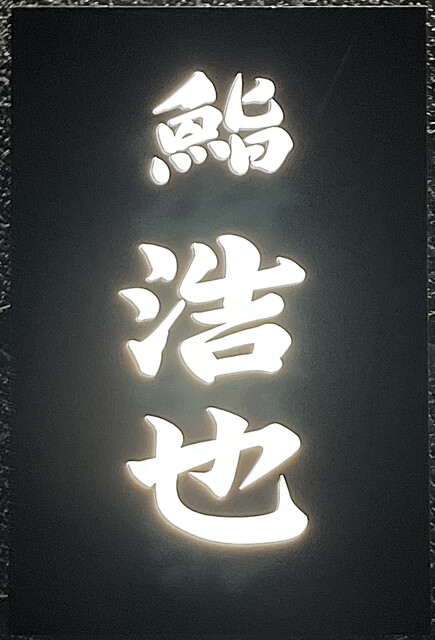 鮨
浩也